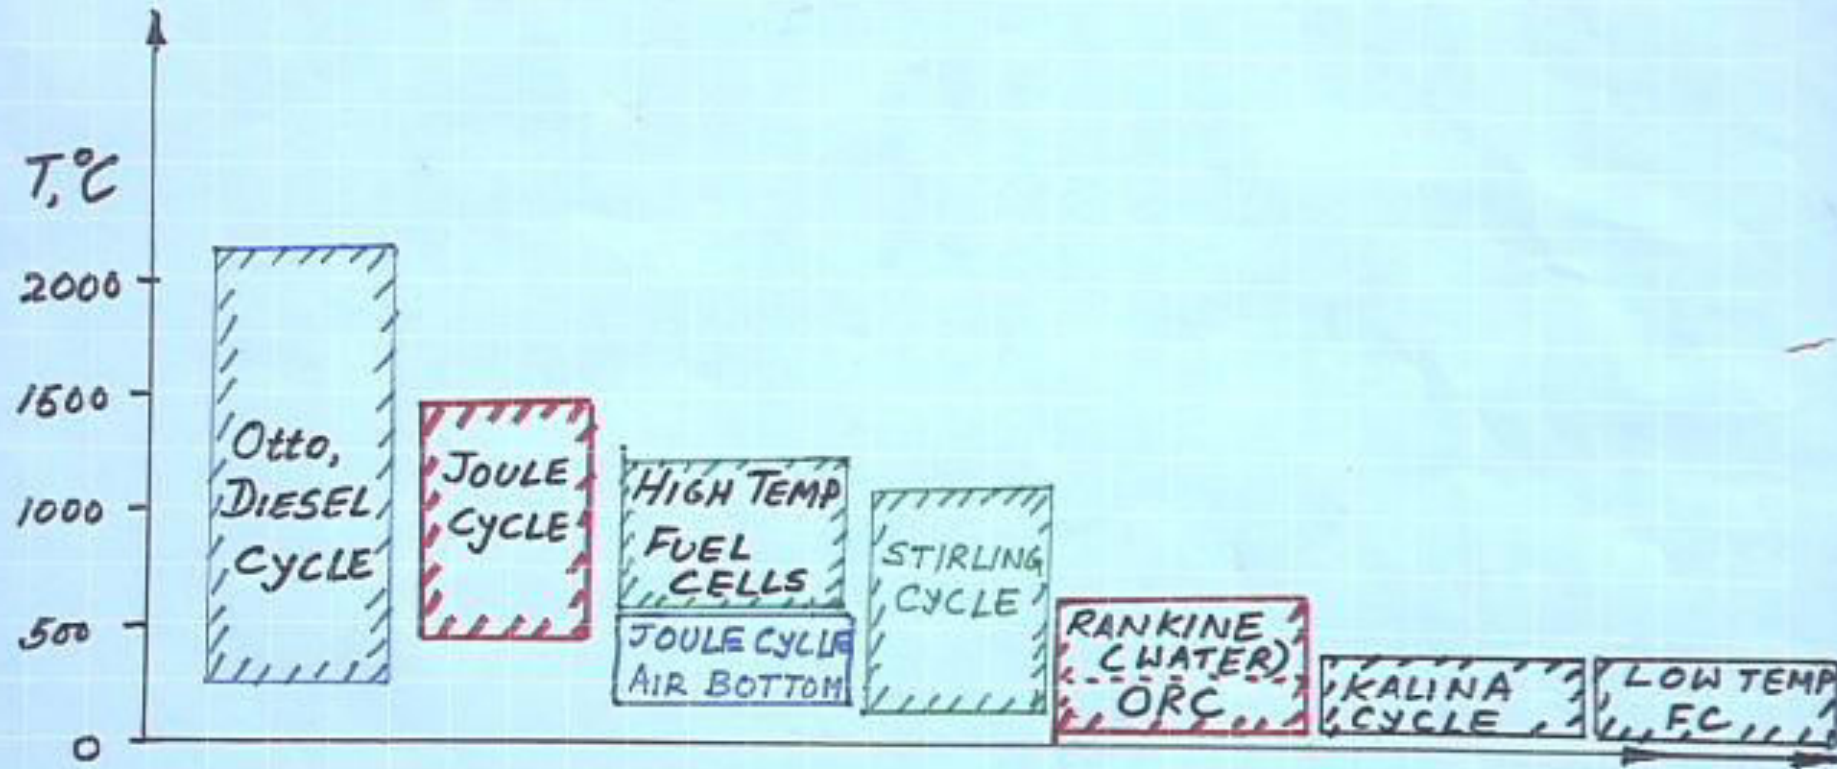 T,°C
2000
1500
1000
500
0
Otto,
DIESEL
CYCLE
JOULE
CYCLE
HIGH TEMP
FUEL
CELLS
JOULE CYCLE
AIR BOTTOM
STIRLING
CYCLE
RANKINE
(WATER)
ORC
KALINA
CYCLE
LOW TEMP
FC